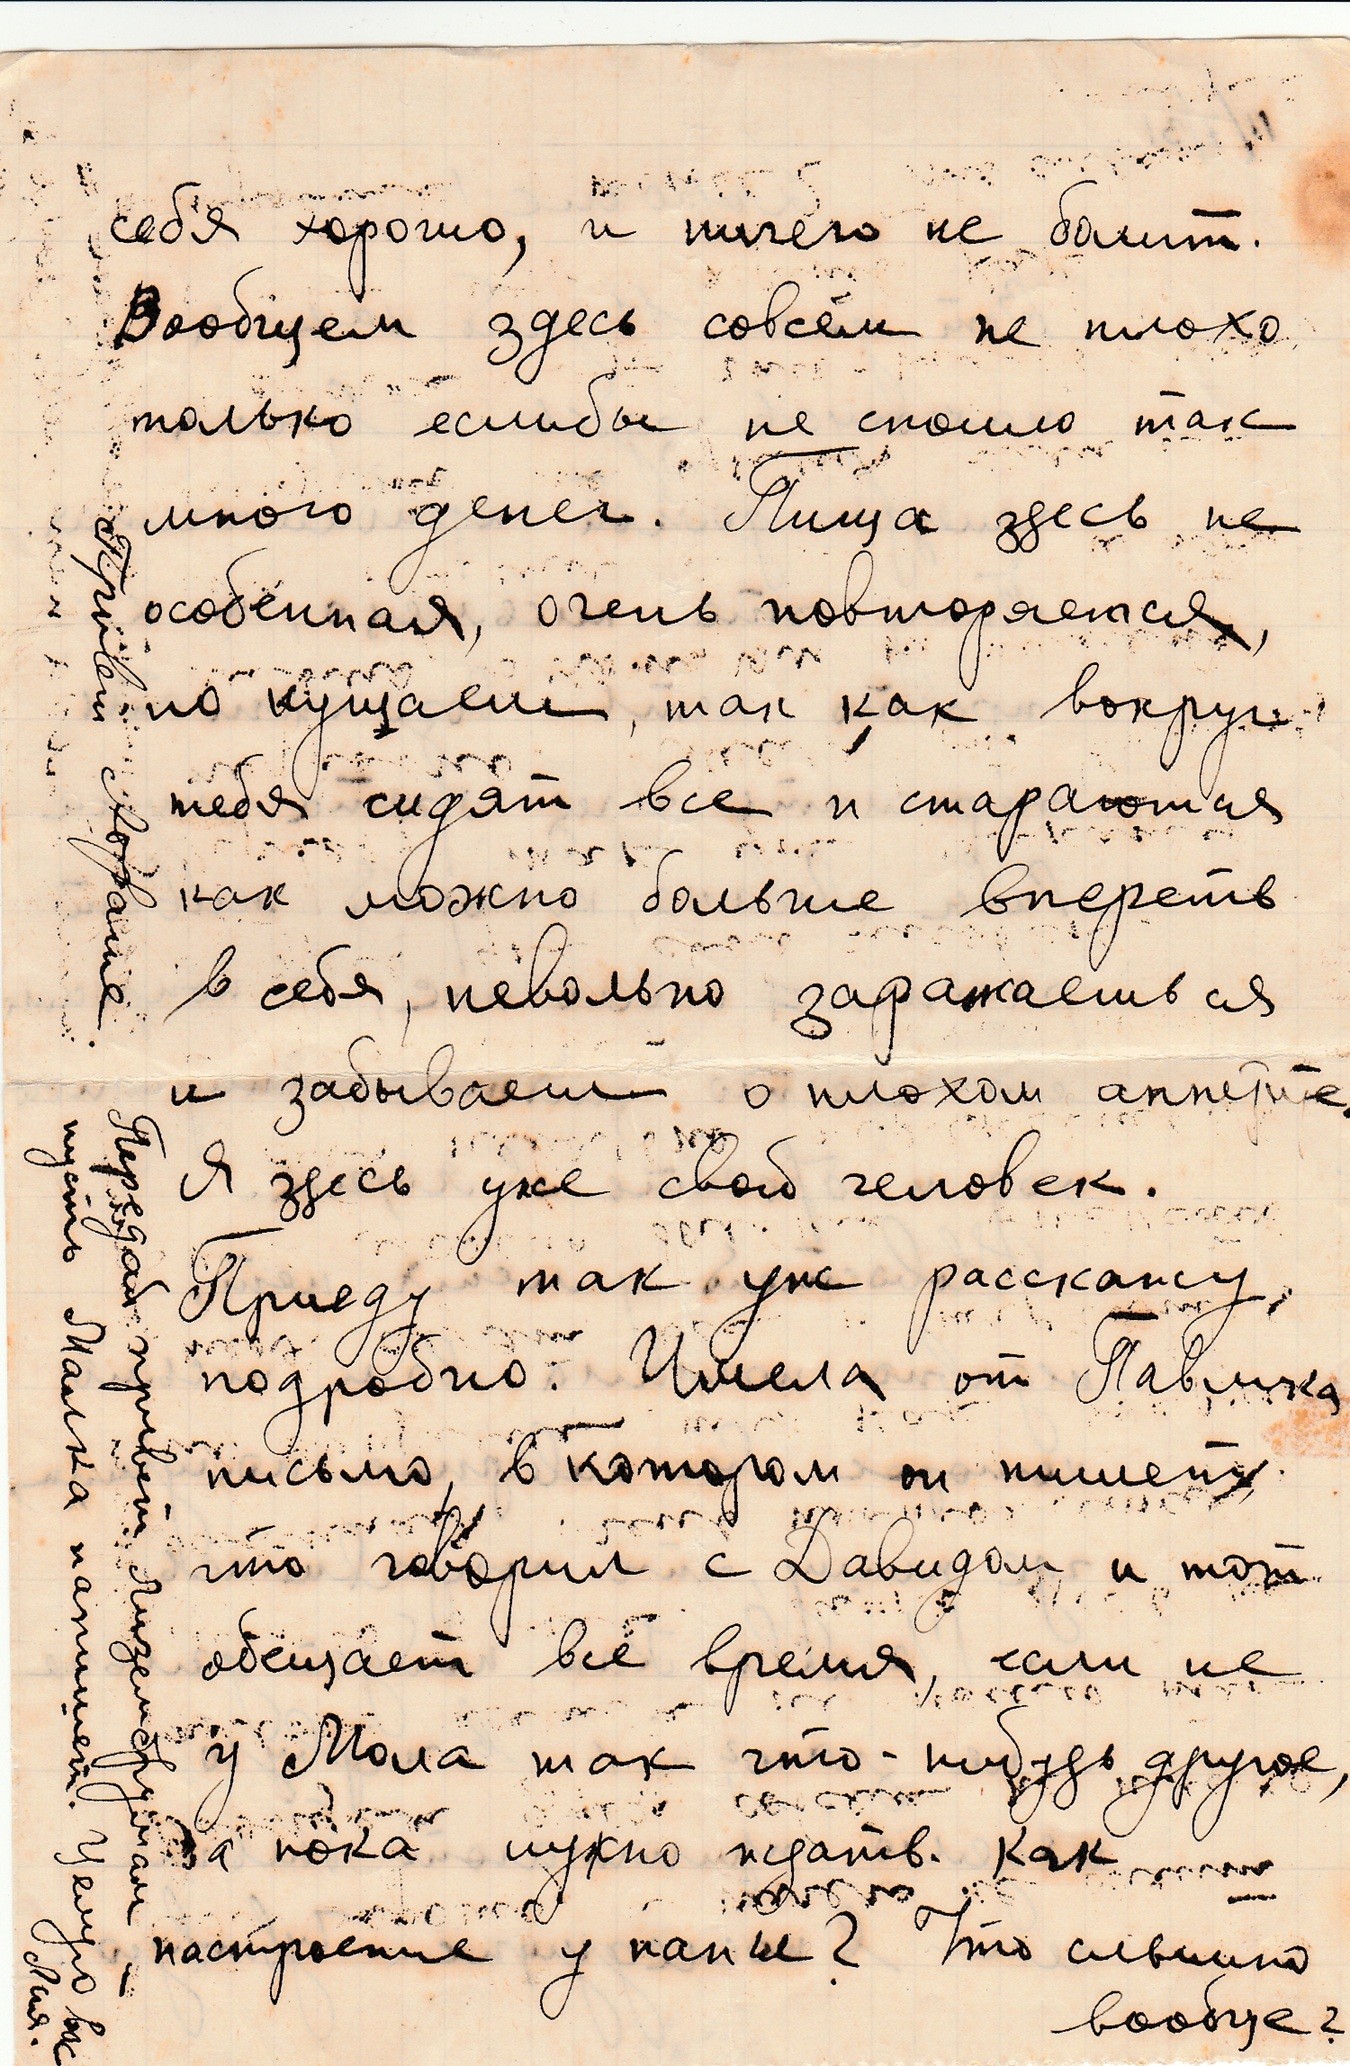 себя хорошо, и ничего не болит.
Вообщем здесь совсем не плохо
только еслибы не стоило так
много денег. Пища здесь не
особенная, очень повторяется,
но кушаеш, так как вокруг
тебя сидят все и стараются
как можно больше впереть
в себя, невольно заражаешься
и забываеш о плохом аппетите.
Я здесь уже свой человек.
Приеду так уж расскажу,
подробно. Имела от Павлика
письмо, в котором он пишет,
что говорил с Давидом и тот
обещает всё время, если не
у Мола так что-нибудь другое,
а пока нужно ждать. Как
настроение у папы? Что слышно
вообще?
Привет Абраше.
Передай привет Лизе и Фруман
пусть Малка напишет. Целую вас
Лия.